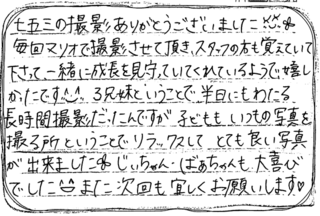 七五三の撮影ありがとうございました
毎回マリオで撮影させて頂き、スタッフの方も覚えていて
下さって一緒に成長を見守っていてくれているようで嬉し
かったです 3兄妹ということで、半日にもわたる
長時間撮影だったんですが子どももいつもの写真を
撮る所ということでリラックスして とても良い写真
が出来ました じぃちゃん・ばぁちゃんも大喜び
でした また次回も宜しくお願いします♡